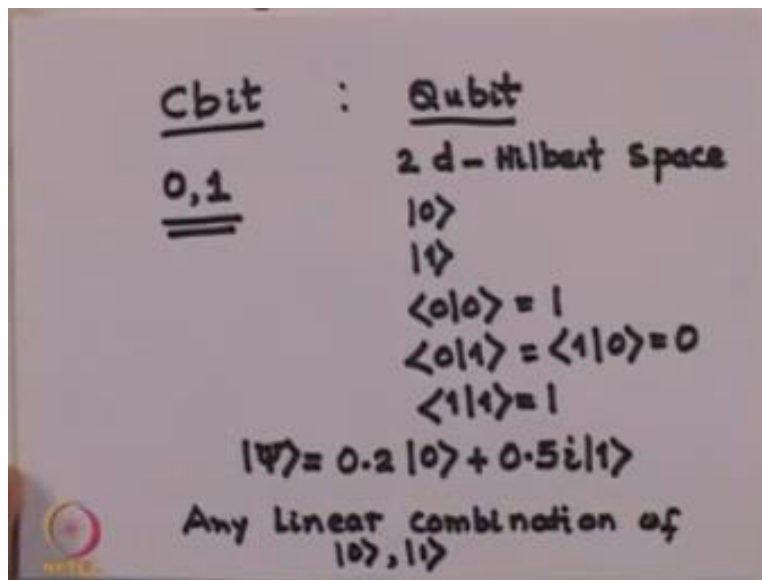 Cbit : Qubit
0,1 2d-Hilbert Space
|0⟩
|1⟩
⟨0|0⟩ = 1
⟨0|1⟩ = ⟨1|0⟩ = 0
⟨1|1⟩ = 1
|Ψ⟩ = 0.2 |0⟩ + 0.5i|1⟩
Any Linear combination of
|0⟩, |1⟩
NPTEL